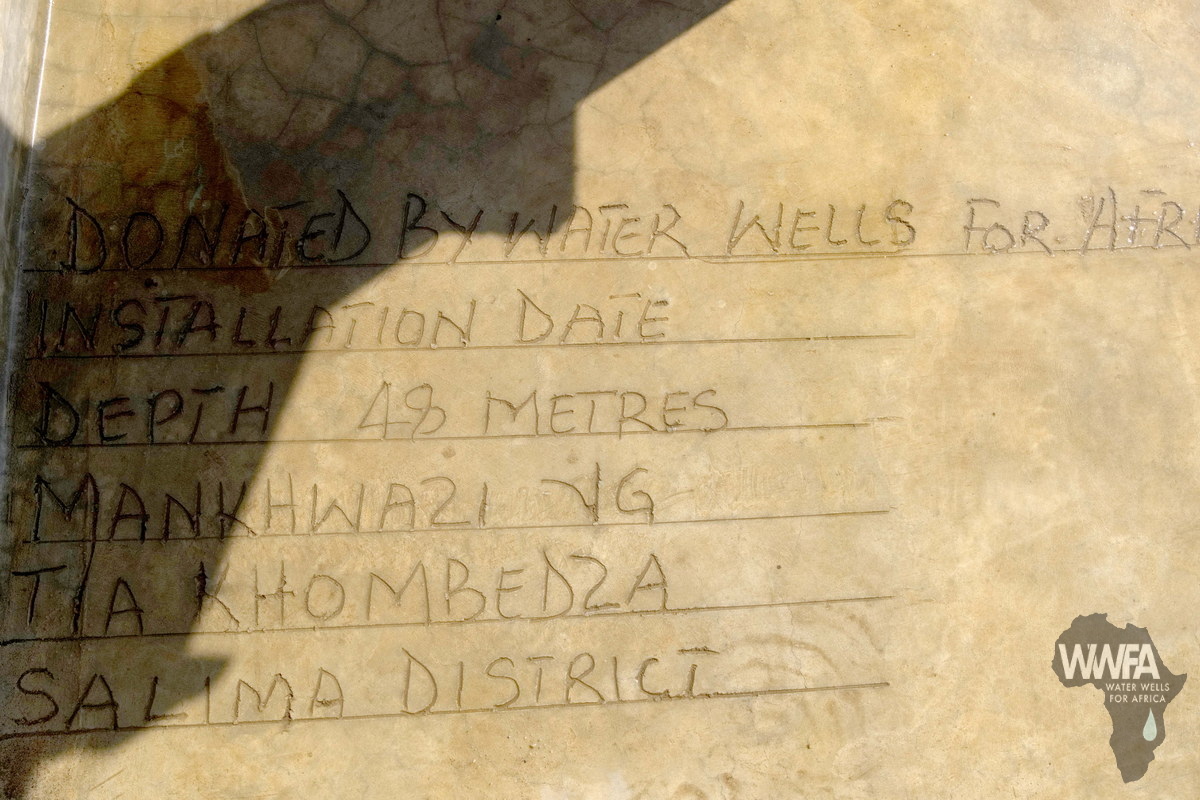 DONATED BY WATER WELLS FOR AFRI
INSTALLATION DATE
DEPTH 48 METRES
MANKHWAZI VG
T/A KHOMBEDZA
SALIMA DISTRICT
WWFA
WATER WELLS
FOR AFRICA